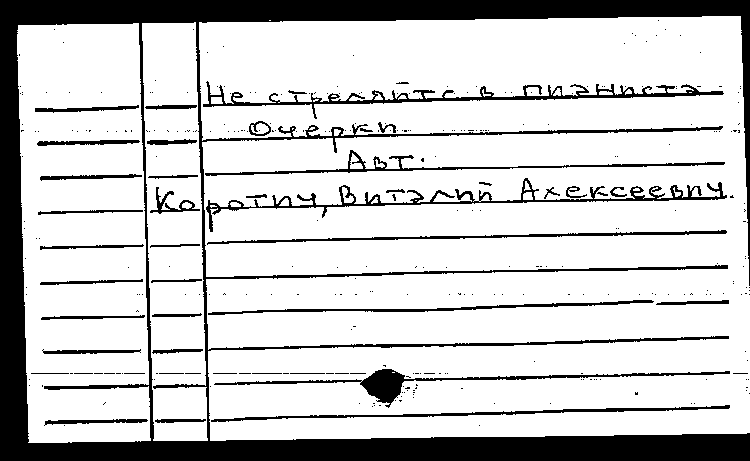 Не стреляйте в пианиста
Очерки.
Авт.
Коротич, Виталий Алексеевич.